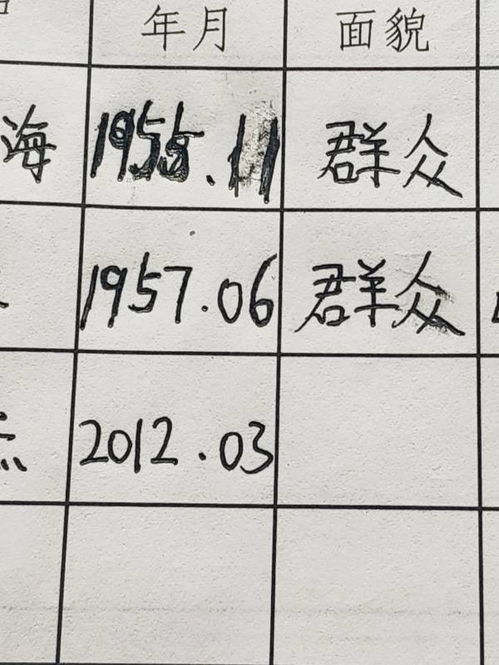 年月 面貌
海 1955.11 群众
1957.06 群众
杰 2012.03